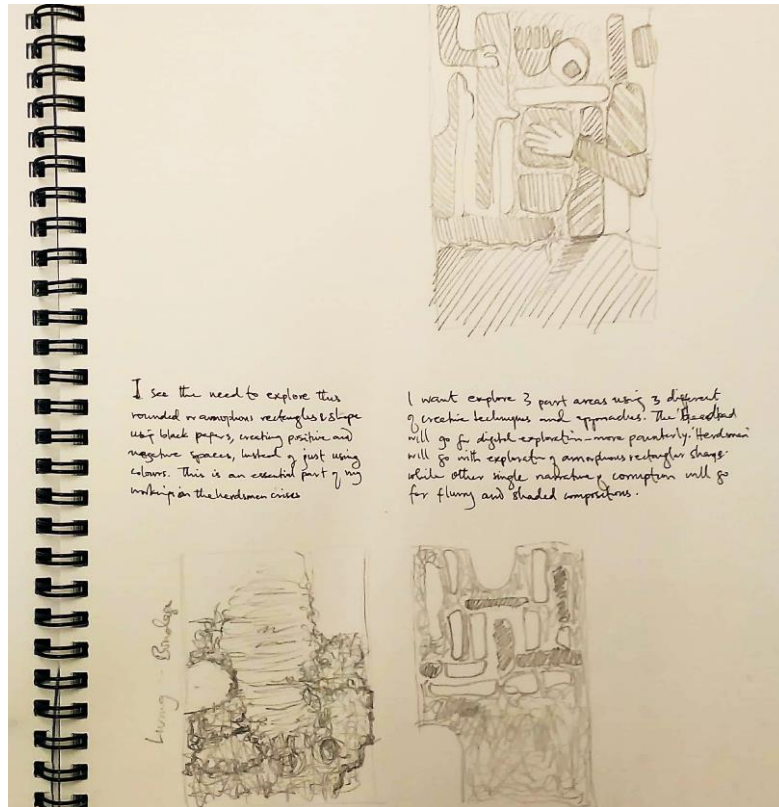 I see the need to explore this
rounded or amorphous rectangles & shape
using black papers, creating positive and
negative spaces, instead of just using
colours. This is an essential part of my
working on the herdsmen crises
I want explore 3 part areas using 3 different
of creative techniques and approaches. The
will go for digital exploration - more painterly. 'Herdsmen'
will go with exploration of amorphous rectangular shape.
while other single narrative of corruption will go
for flurry and shaded compositions.
Living Bondage